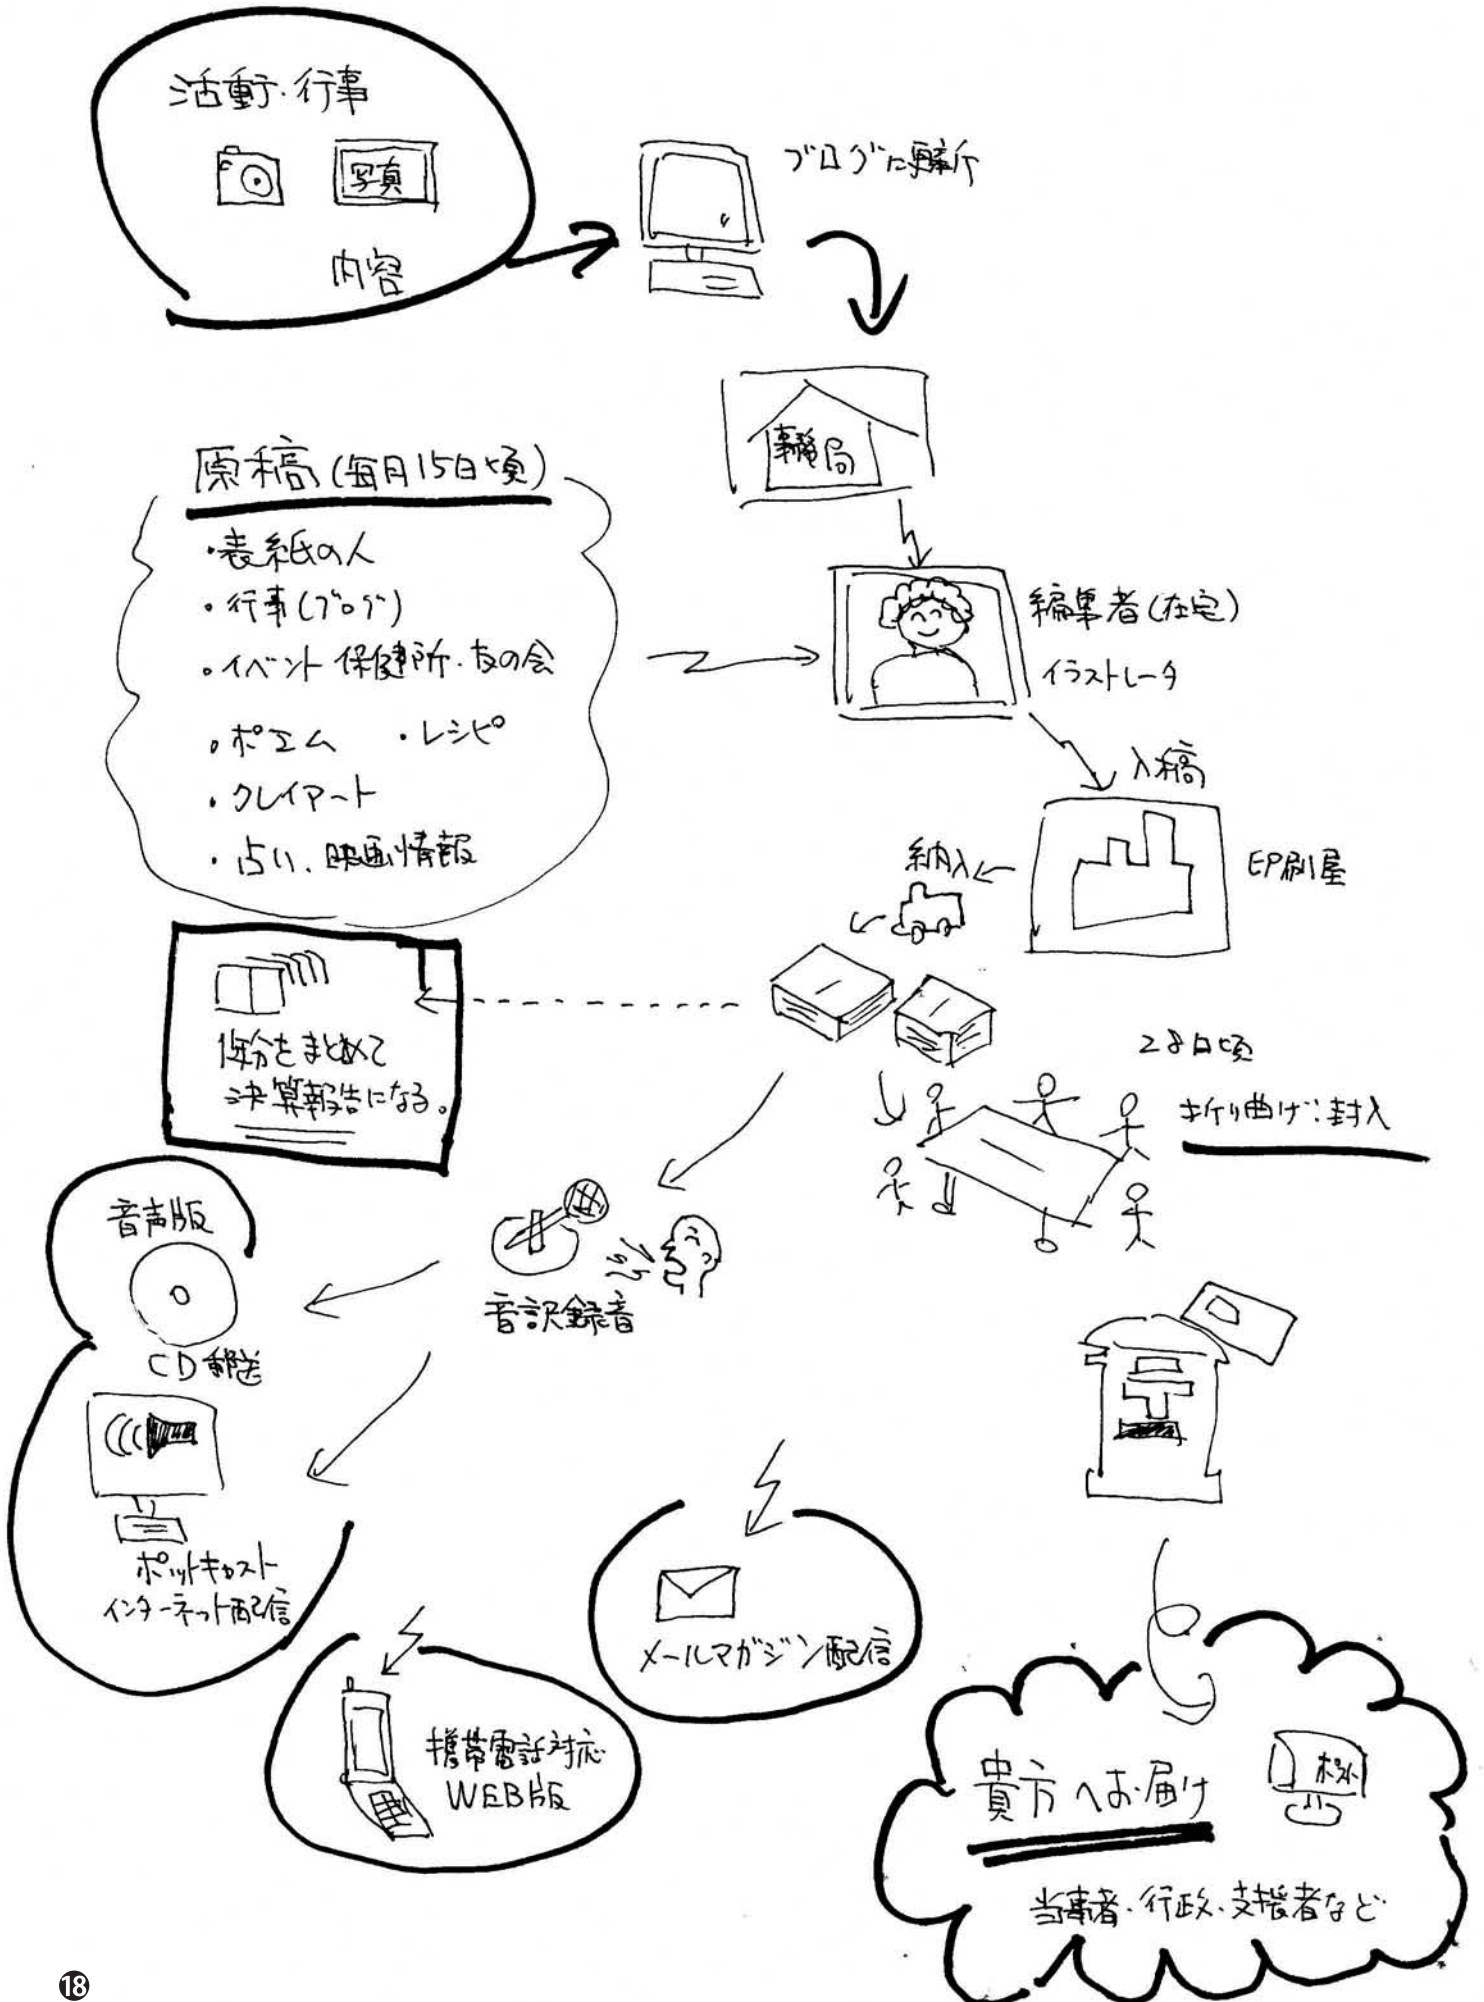 活動・行事
写真
内容
ブログに更新
事務局
原稿(毎月15日頃)
・表紙の人
・行事(ブログ)
・イベント 保健所・友の会
・ポエム ・レシピ
・クレイアート
・占い、映画情報
編集者(在宅)
イラストレータ
入稿
印刷屋
納入
1年分をまとめて
決算報告になる。
28日頃
折り曲げ・封入
音声版
CD郵送
音訳録音
〒
ポットキャスト
インターネット配信
メールマガジン配信
携帯電話対応
WEB版
貴方へお届け
ポスト
当事者・行政・支援者など
18